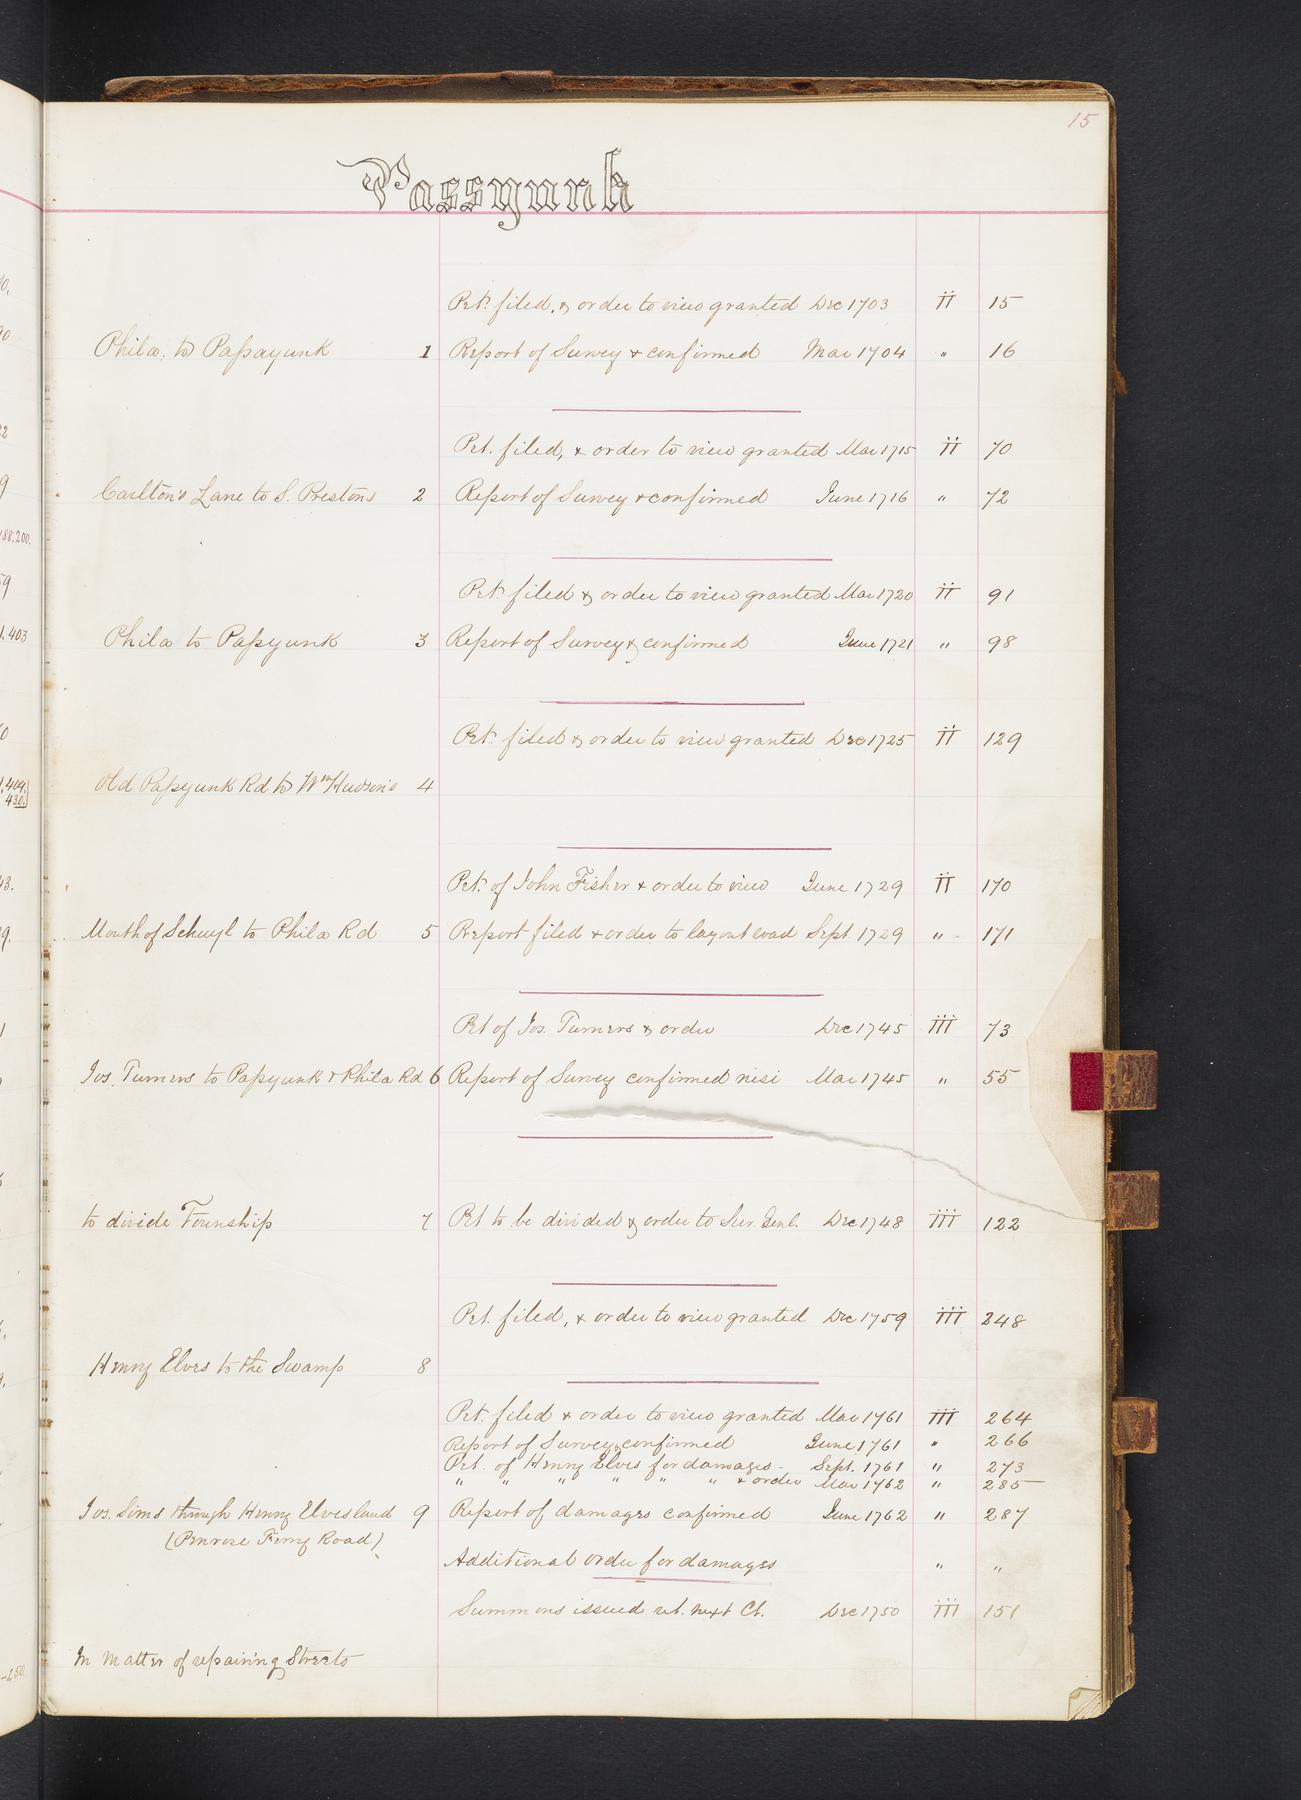 15
Passyunk
Pet. filed, & order to view granted Dec 1703 ii 15
Phila. to Passayunk 1 Report of Survey & confirmed Mar 1704 " 16
Pet. filed, & order to view granted Mar 1715 ii 70
Carlton's Lane to S. Prestons 2 Report of Survey & confirmed June 1716 " 72
Pet. filed & order to view granted Mar 1720 ii 91
Phila to Passyunk 3 Report of Survey & confirmed June 1721 " 98
Pet. filed & order to view granted Dec 1725 ii 129
Old Passyunk Rd to Wm Hudson's 4
Pet. of John Fisher & order to view June 1729 ii 170
Mouth of Schuyl to Phila Rd 5 Report filed & order to layout road Sept. 1729 " 171
Pet of Jos. Turners & order Dec 1745 iii 73
Jos. Turners to Passyunk & Phila Rd 6 Report of Survey confirmed nisi Mar 1745 " 55
to divide Township 7 Pet to be divided & order to Sur. Genl. Dec 1748 iii 122
Pet. filed, & order to view granted Dec 1759 iii 248
Henry Elves to the Swamp 8
Pet. filed & order to view granted Mar 1761 iii 264
Report of Survey & confirmed June 1761 " 266
Pet. of Henry Elves for damages - Sept. 1761 " 273
" " " " " " & order Mar 1762 " 285
Jos. Sims through Henry Elves land 9 Report of damages confirmed June 1762 " 287
(Penrose Ferry Road)
Additional order for damages " "
Summons issued ret. next Ct. Dec 1750 iii 151
In Matter of repairing Streets